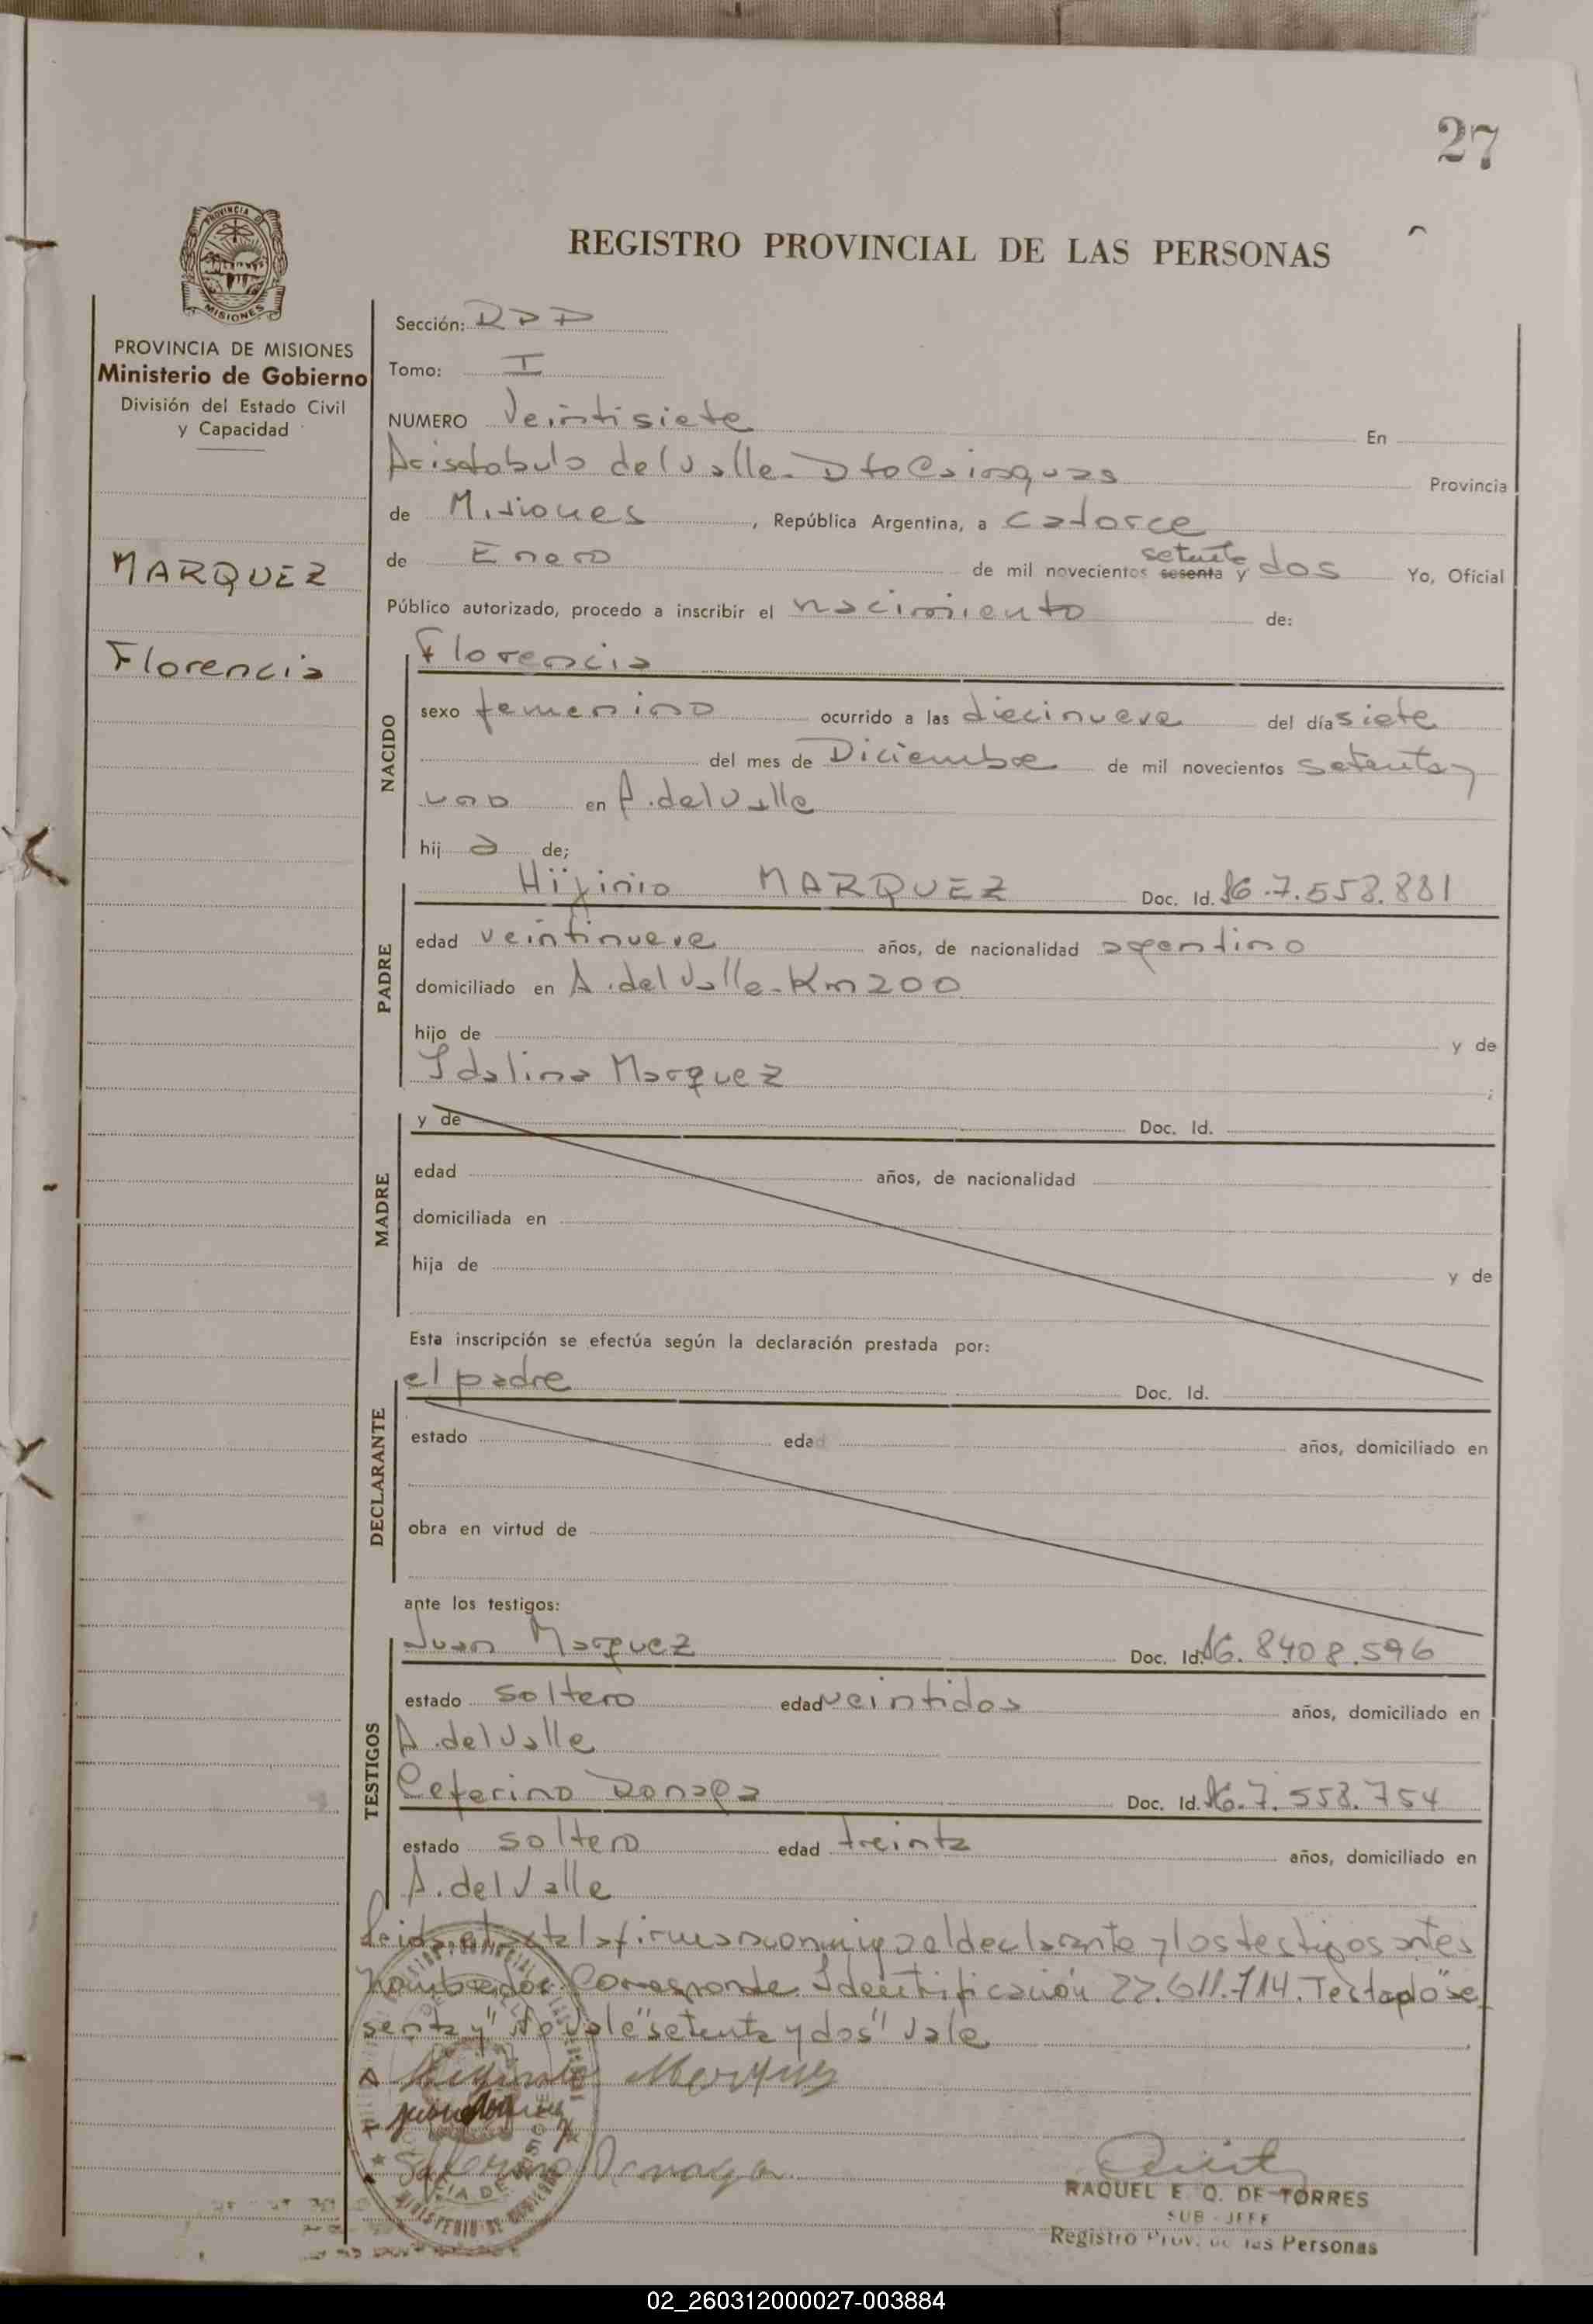 27
PROVINCIA DE
MISIONES
REGISTRO PROVINCIAL DE LAS PERSONAS
PROVINCIA DE MISIONES
Ministerio de Gobierno
División del Estado Civil
y Capacidad
MARQUEZ
Florencia
Sección: RPP
Tomo: I
NUMERO Veintisiete En
Aristobulo del Valle - Dto Cainguas Provincia
de Misiones, República Argentina, a catorce
setenta
de Enero de mil novecientos sesenta y dos Yo, Oficial
Público autorizado, procedo a inscribir el nacimiento de:
NACIDO
Florencia
sexo femenino ocurrido a las diecinueve del día siete
del mes de Diciembre de mil novecientos setenta y
uno en A. del Valle
hij a de;
PADRE
Hijinio MARQUEZ Doc. Id. 7.558.881
edad veintinueve años, de nacionalidad argentino
domiciliado en A. del Valle - Km 200
hijo de y de
Idalina Marquez ;
MADRE
y de Doc. Id.
edad años, de nacionalidad
domiciliada en
hija de y de
Esta inscripción se efectúa según la declaración prestada por:
DECLARANTE
el padre Doc. Id.
estado edad años, domiciliado en
obra en virtud de
ante los testigos:
TESTIGOS
Juan Marquez Doc. Id. 8.408.596
estado soltero edad veintidos años, domiciliado en
A. del Valle
Ceferino Doc. Id. 7.558.754
estado soltero edad treinta años, domiciliado en
A. del Valle
Leida el acta la firman conmigo el declarante y los testigos antes
nombrados. Corresponde Identificación 22.611.714. Testado "se
senta y" No Vale "setenta y dos" Vale
Marquez
RAQUEL E. Q. DE TORRES
SUB-JEFE
Registro Prov. de las Personas
02_260312000027-003884